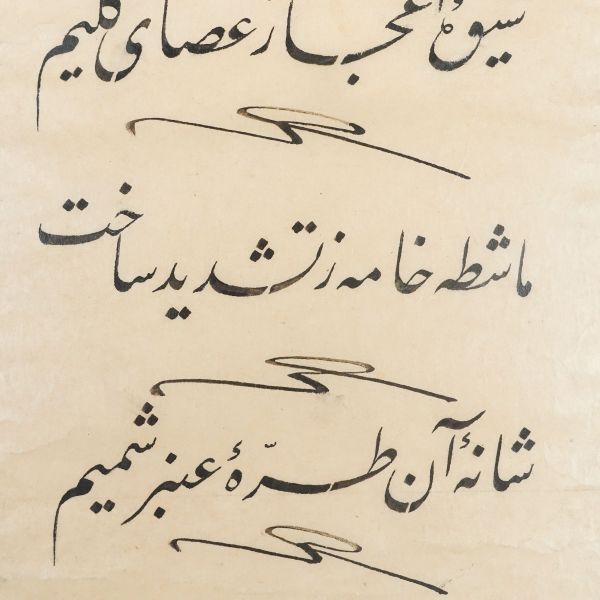 شیوهٔ اعجاز عصای کلیم
ماشطه خامه ز تشدید ساخت
شانهٔ آن طرّهٔ عنبر شمیم